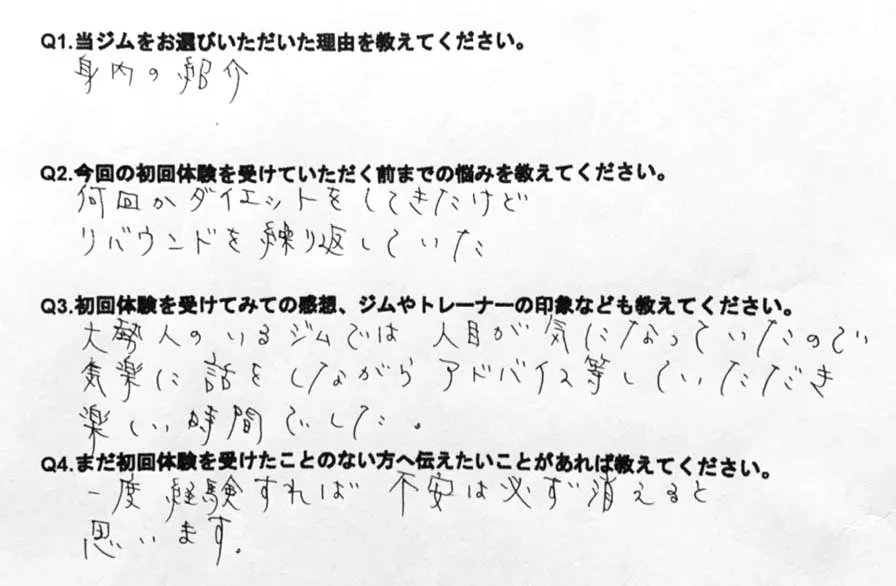 Q1.当ジムをお選びいただいた理由を教えてください。
身内の紹介
Q2.今回の初回体験を受けていただく前までの悩みを教えてください。
何回かダイエットをしてきたけど
リバウンドを繰り返していた
Q3.初回体験を受けてみての感想、ジムやトレーナーの印象なども教えてください。
大勢人のいるジムでは人目が気になっていたので
気楽に話をしながらアドバイス等していただき
楽しい時間でした。
Q4.まだ初回体験を受けたことのない方へ伝えたいことがあれば教えてください。
一度経験すれば不安は必ず消えると
思います。